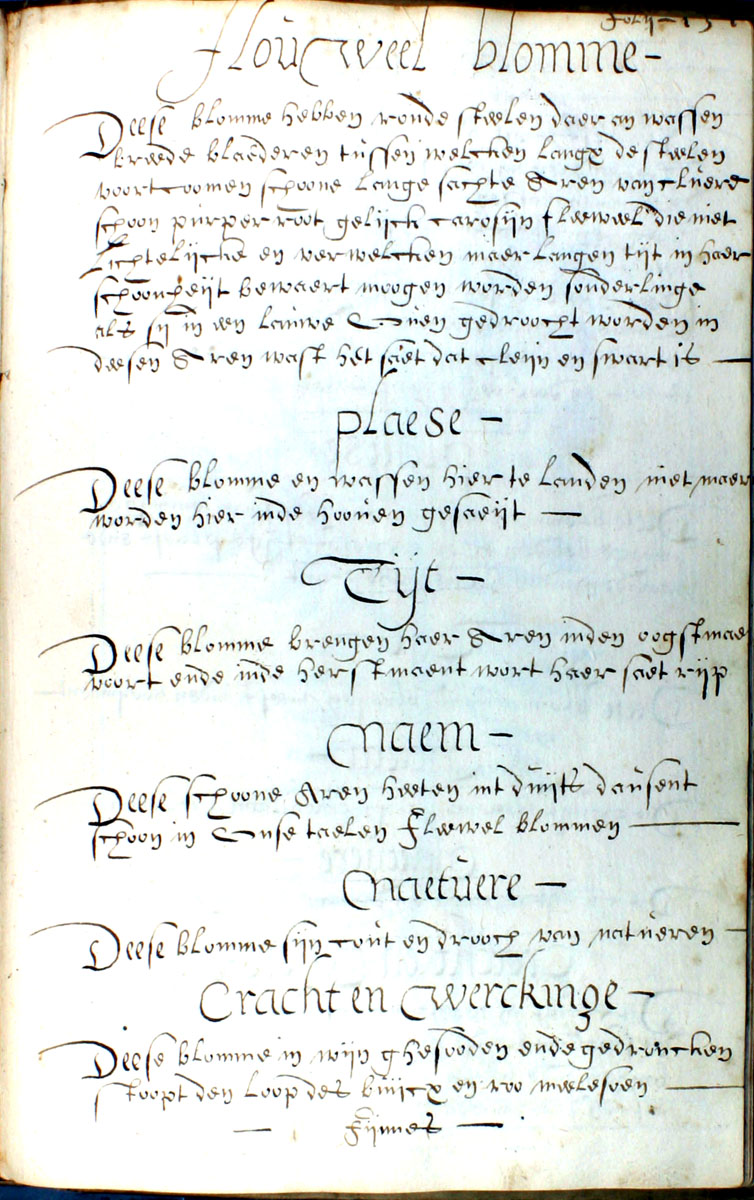 flouweel blomme -
Deese blomme hebben ronde steelen daer an wassen
breede blaederen tussen welcken langx de steelen
voortcoomen schoone lange sachte Aren van cluere
schoon purper root gelijck carosijn fleweel die niet
Lichtelijcke en verwelcken maer langen tijt in haer
schoonheijt bewaert moogen worden sonderlinge
als sij in een lauwe Oven gedroocht worden in
deesen Aren wast het saet dat cleijn en swart is —
plaese -
Deese blomme en wassen hier te landen niet maer
worden hier inde hooven gesaeijt —
Tijt -
Deese blomme brengen haer Aren inden oogstmae
voort ende inde herstmaent wort haer saet rijp
Naem -
Deese schoone Aren heeten int duijts dausent
schoon in Onse taelen fleewel blommen —
Naetuere -
Deese blomme sijn cout en drooch van natueren -
Cracht en Werckinge -
Deese blomme in wijn ghesooden ende gedroncken
stoopt den loop des buicx en roo meelesoen —
— fijnnes —